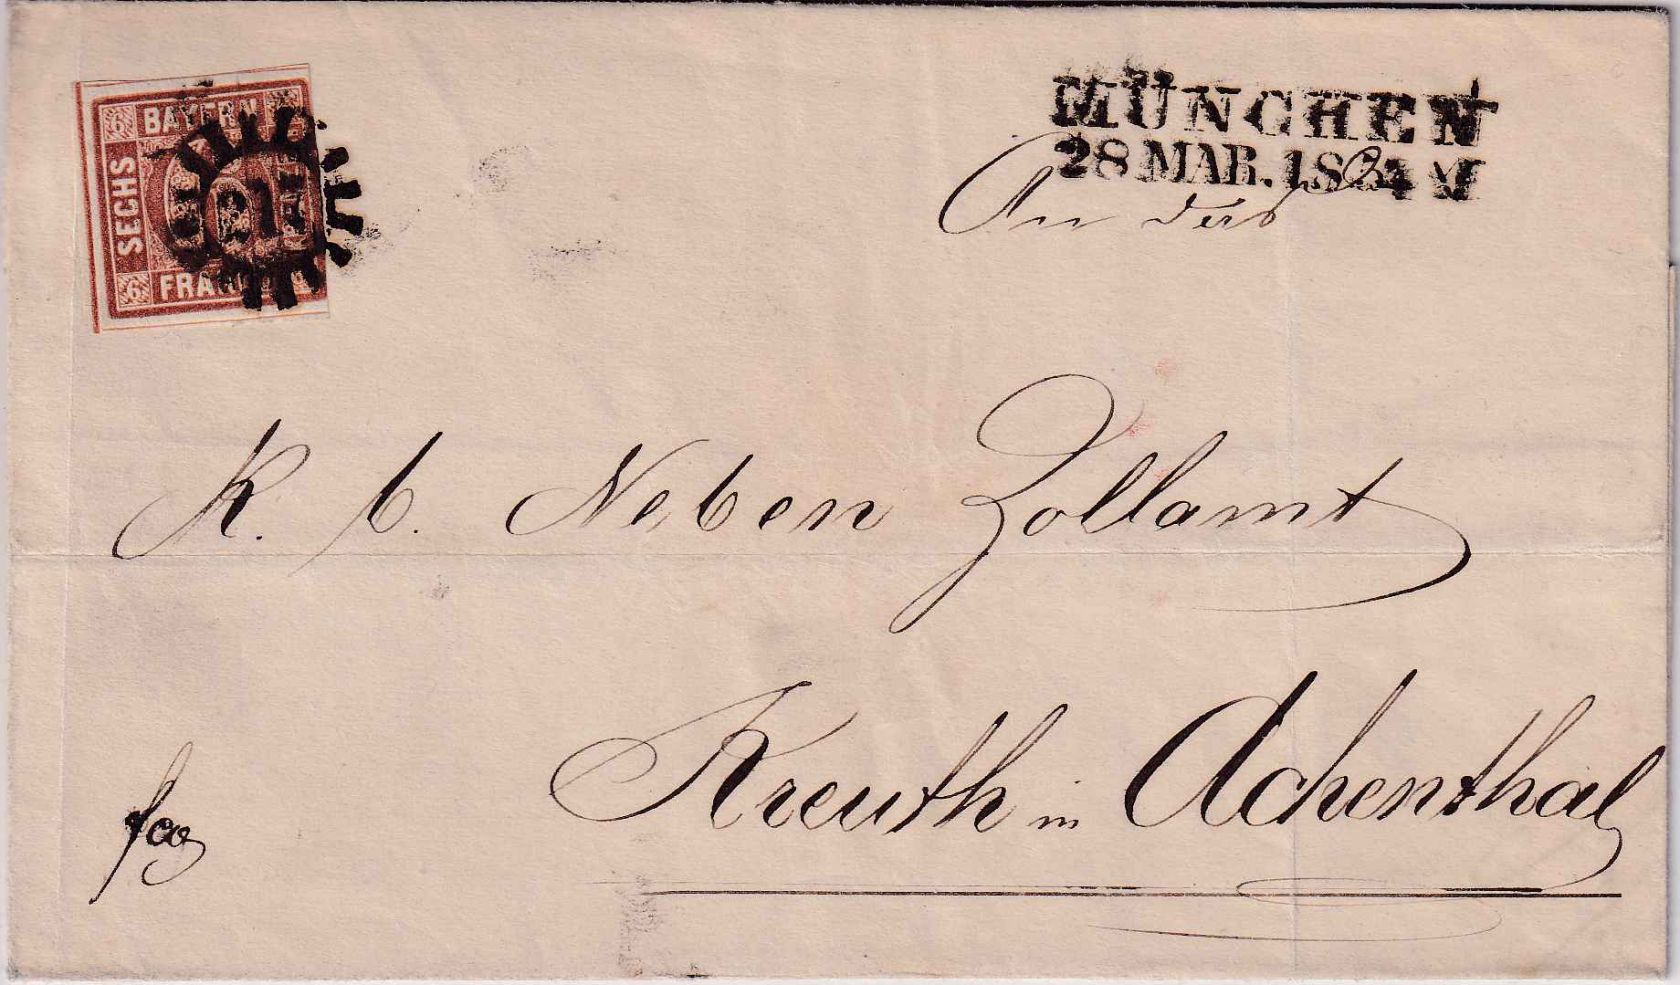 BAYERN
SECHS
6
6
MÜNCHEN
28 MAR. 18
An das
K. b. Neben Zollamt
Kreuth in Achenthal
fco